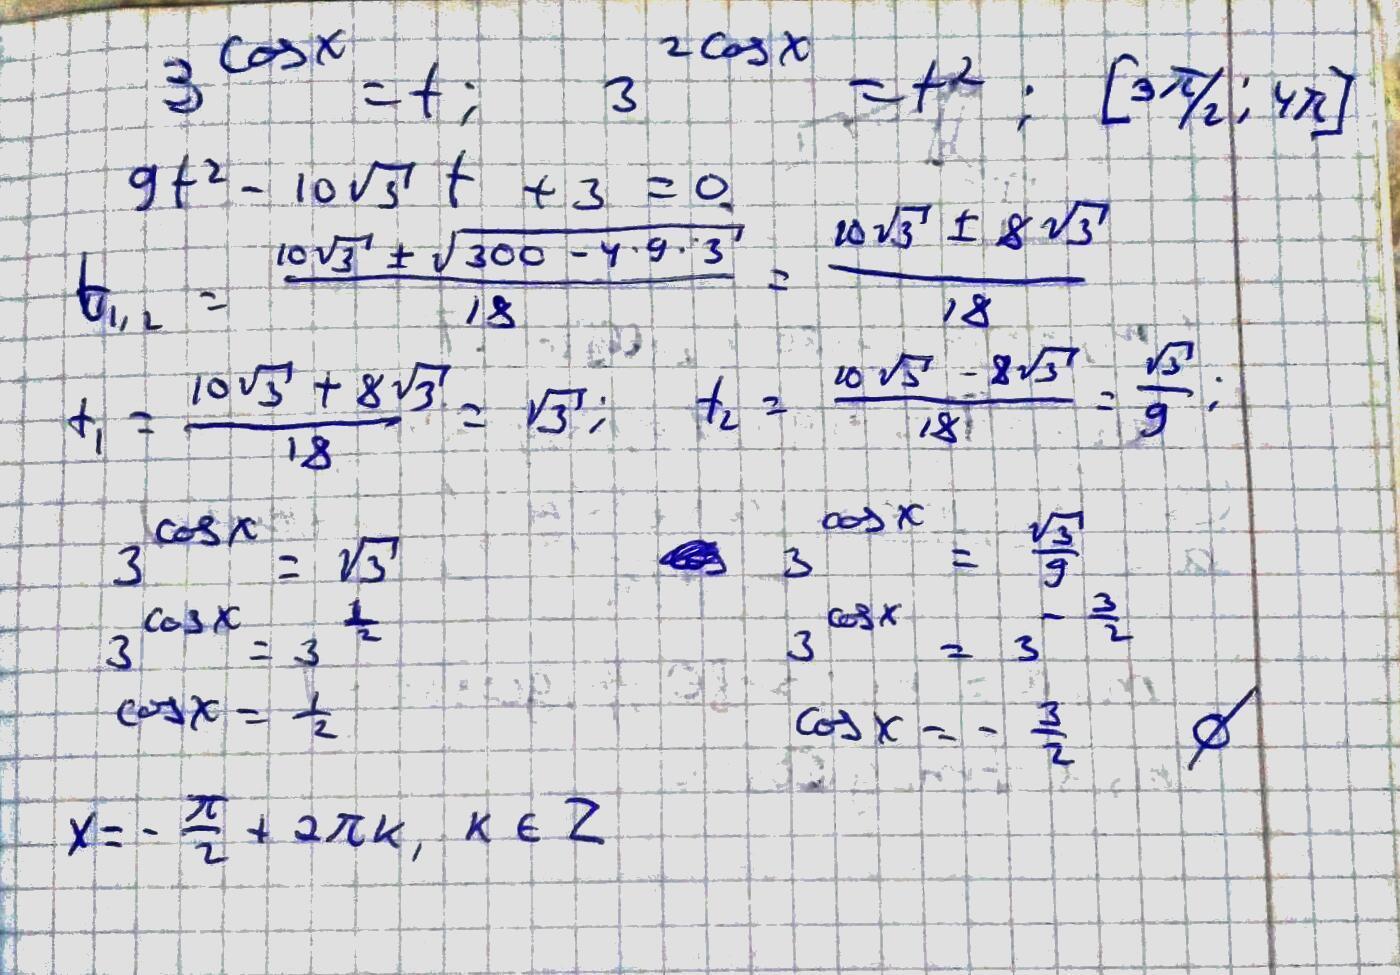 3^cosx = t; 3^2cosx = t²; [3π/2; 4π]
9t² - 10√3 t + 3 = 0
t₁,₂ = (10√3 ± √(300 - 4·9·3))/18 = (10√3 ± 8√3)/18
t₁ = (10√3 + 8√3)/18 = √3; t₂ = (10√3 - 8√3)/18 = √3/9;
3^cosx = √3 3^cosx = √3/9
3^cosx = 3^(1/2) 3^cosx = 3^(-3/2)
cosx = 1/2 cosx = -3/2 ∅
x = -π/2 + 2πk, k ∈ Z